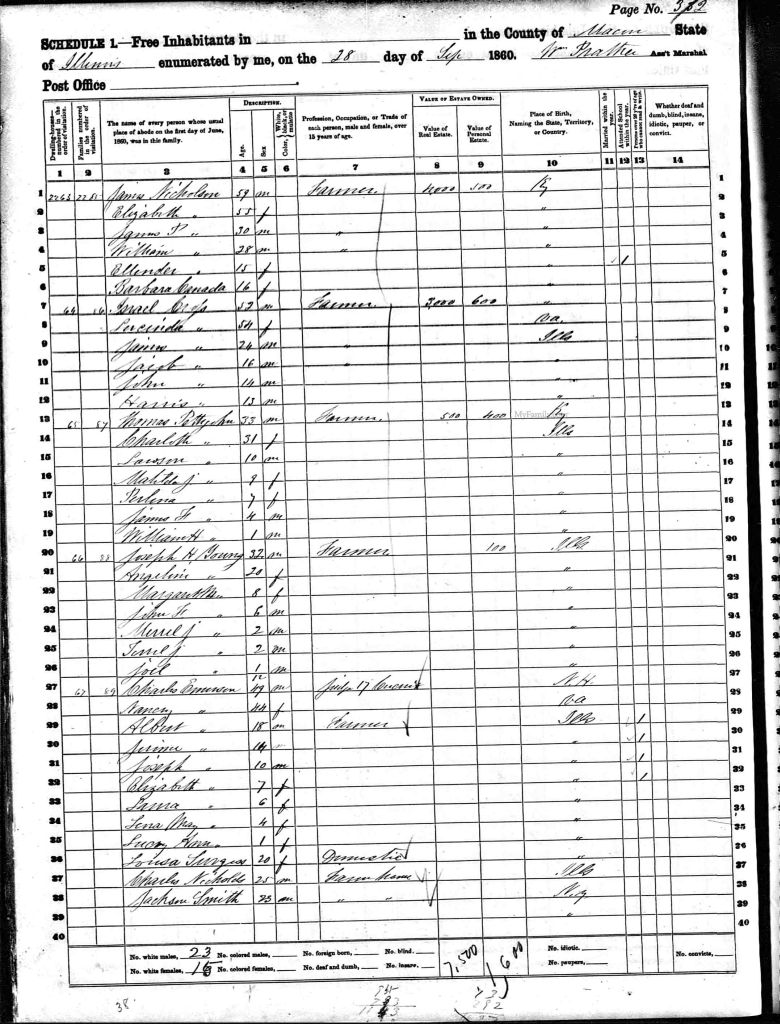 Page No. 382
SCHEDULE 1.—Free Inhabitants in in the County of Macon State
of Illinois enumerated by me, on the 28 day of Sep 1860. Wm Prather Ass't Marshal
Post Office
Dwelling-houses—numbered in the order of visitation. Families numbered in the order of visitation. The name of every person whose usual place of abode on the first day of June, 1860, was in this family. DESCRIPTION. Age. Sex. Color, White, black, or mulatto Profession, Occupation, or Trade of each person, male and female, over 15 years of age. VALUE OF ESTATE OWNED. Value of Real Estate. Value of Personal Estate. Place of Birth, Naming the State, Territory, or Country. Married within the year. Attended School within the year. Persons over 20 y'rs of age who cannot read & write. Whether deaf and dumb, blind, insane, idiotic, pauper, or convict.
1 2 3 4 5 6 7 8 9 10 11 12 13 14
1 2263 James Nicholson 59 m Farmer 4,000 500 Ky 1
2 Elizabeth " 55 f " 2
3 James P " 30 m " " 3
4 William " 28 m " " 4
5 Ellender " 15 f 1 5
6 Barbara Canada 16 f " 6
7 64 Israel 53 m Farmer 3,000 600 " 7
8 " 54 f va. 8
9 James " 24 m " Ills 9
10 Jacob " 16 m " " 10
11 John " 14 m " 11
12 Harris " 13 m " 12
13 65 57 Thomas Pettyjohn 33 m Farmer 500 400 Ky 13
14 Charlotte " 31 f Ills 14
15 Lawson " 10 m " 15
16 Matilda J " 9 f " 16
17 Perlina " 7 f " 17
18 James F " 4 m " 18
19 William H " 1 m " 19
20 66 58 Joseph H Young 32 m Farmer 100 Ills 20
21 Angeline " 20 f " 21
22 Margaret M " 8 f " 22
23 John F " 6 m " 23
24 Merrel J " 2 m " 24
25 Terrel J " 2 m " 25
26 Joel " 1/12 m " 26
27 67 59 Charles Emerson 49 m Judge 17 Circuit N.H. 27
28 Nancy " 44 f va 28
29 Albert " 18 m Farmer Ills 1 29
30 " 14 " 1 30
31 Joseph " 10 m " 1 31
32 Elizabeth " 7 f " 1 32
33 " 6 f " 33
34 Lena May " 4 f " 34
35 Lucy " 1 f " 35
36 Louisa 20 f Domestic " 36
37 Charles Nichols 25 m Farm hand Ills 37
38 Jackson Smith 23 m " " N.Y 38
39 " 39
40 40
No. white males, 23 No. colored males, No. foreign born, No. blind. 7,500 1600 No. idiotic. No. convicts,
No. white females, 15 No. colored females, No. deaf and dumb, No. insane. No. paupers,
38
MyFamily